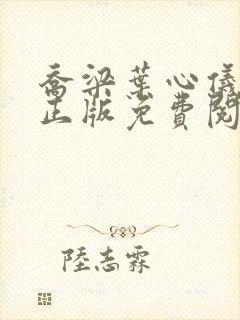 喬梁葉心儀
正版免費閱
陸志霖